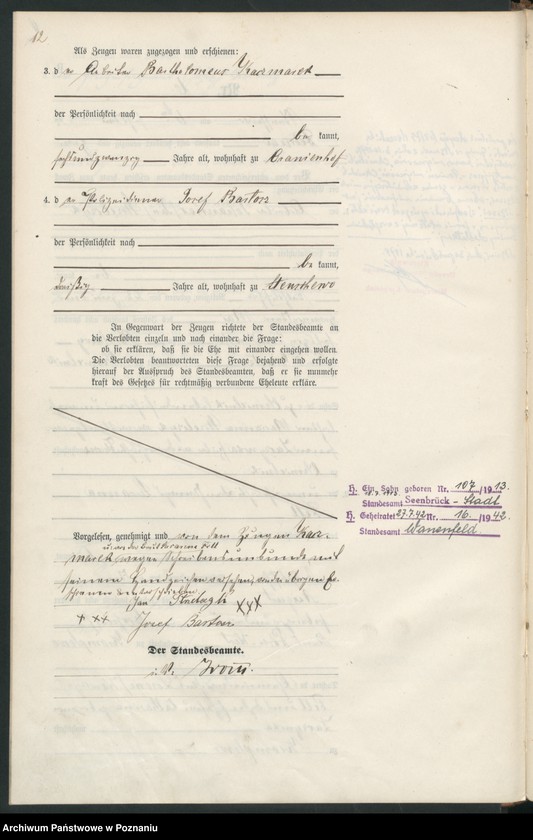 12
Als Zeugen waren zugezogen und erschienen:
3. d er Arbeiter Bartholomeus Karzmarek
der Persönlichkeit nach
be kannt,
sechsundzwanzig Jahre alt, wohnhaft zu Cranienhof
4. d er Polizeidiener Josef Bartosz
der Persönlichkeit nach
be kannt,
dreißig Jahre alt, wohnhaft zu Stenschewo
In Gegenwart der Zeugen richtete der Standesbeamte an
die Verlobten einzeln und nach einander die Frage:
ob sie erklären, daß sie die Ehe mit einander eingehen wollen.
Die Verlobten beantworteten diese Frage bejahend und erfolgte
hierauf der Ausspruch des Standesbeamten, daß er sie nunmehr
kraft des Gesetzes für rechtmäßig verbundene Eheleute erkläre.
H. Ein Sohn geboren Nr. 107 /19 13.
18.7.1913 Standesamt Seenbrück - Stadt
H. Geheiratet 27.7.42 Nr. 16. /19 42.
Standesamt Wanenfeld
Vorgelesen, genehmigt und von dem Zeugen Karz-
marek wegen Schreibensunkunde mit
seinem Handzeichen versehen, von den übrigen Er-
schienenen unterschrieben
Jan
+ ++ +++
Josef Bartosz
Der Standesbeamte.
Archiwum Państwowe w Poznaniu